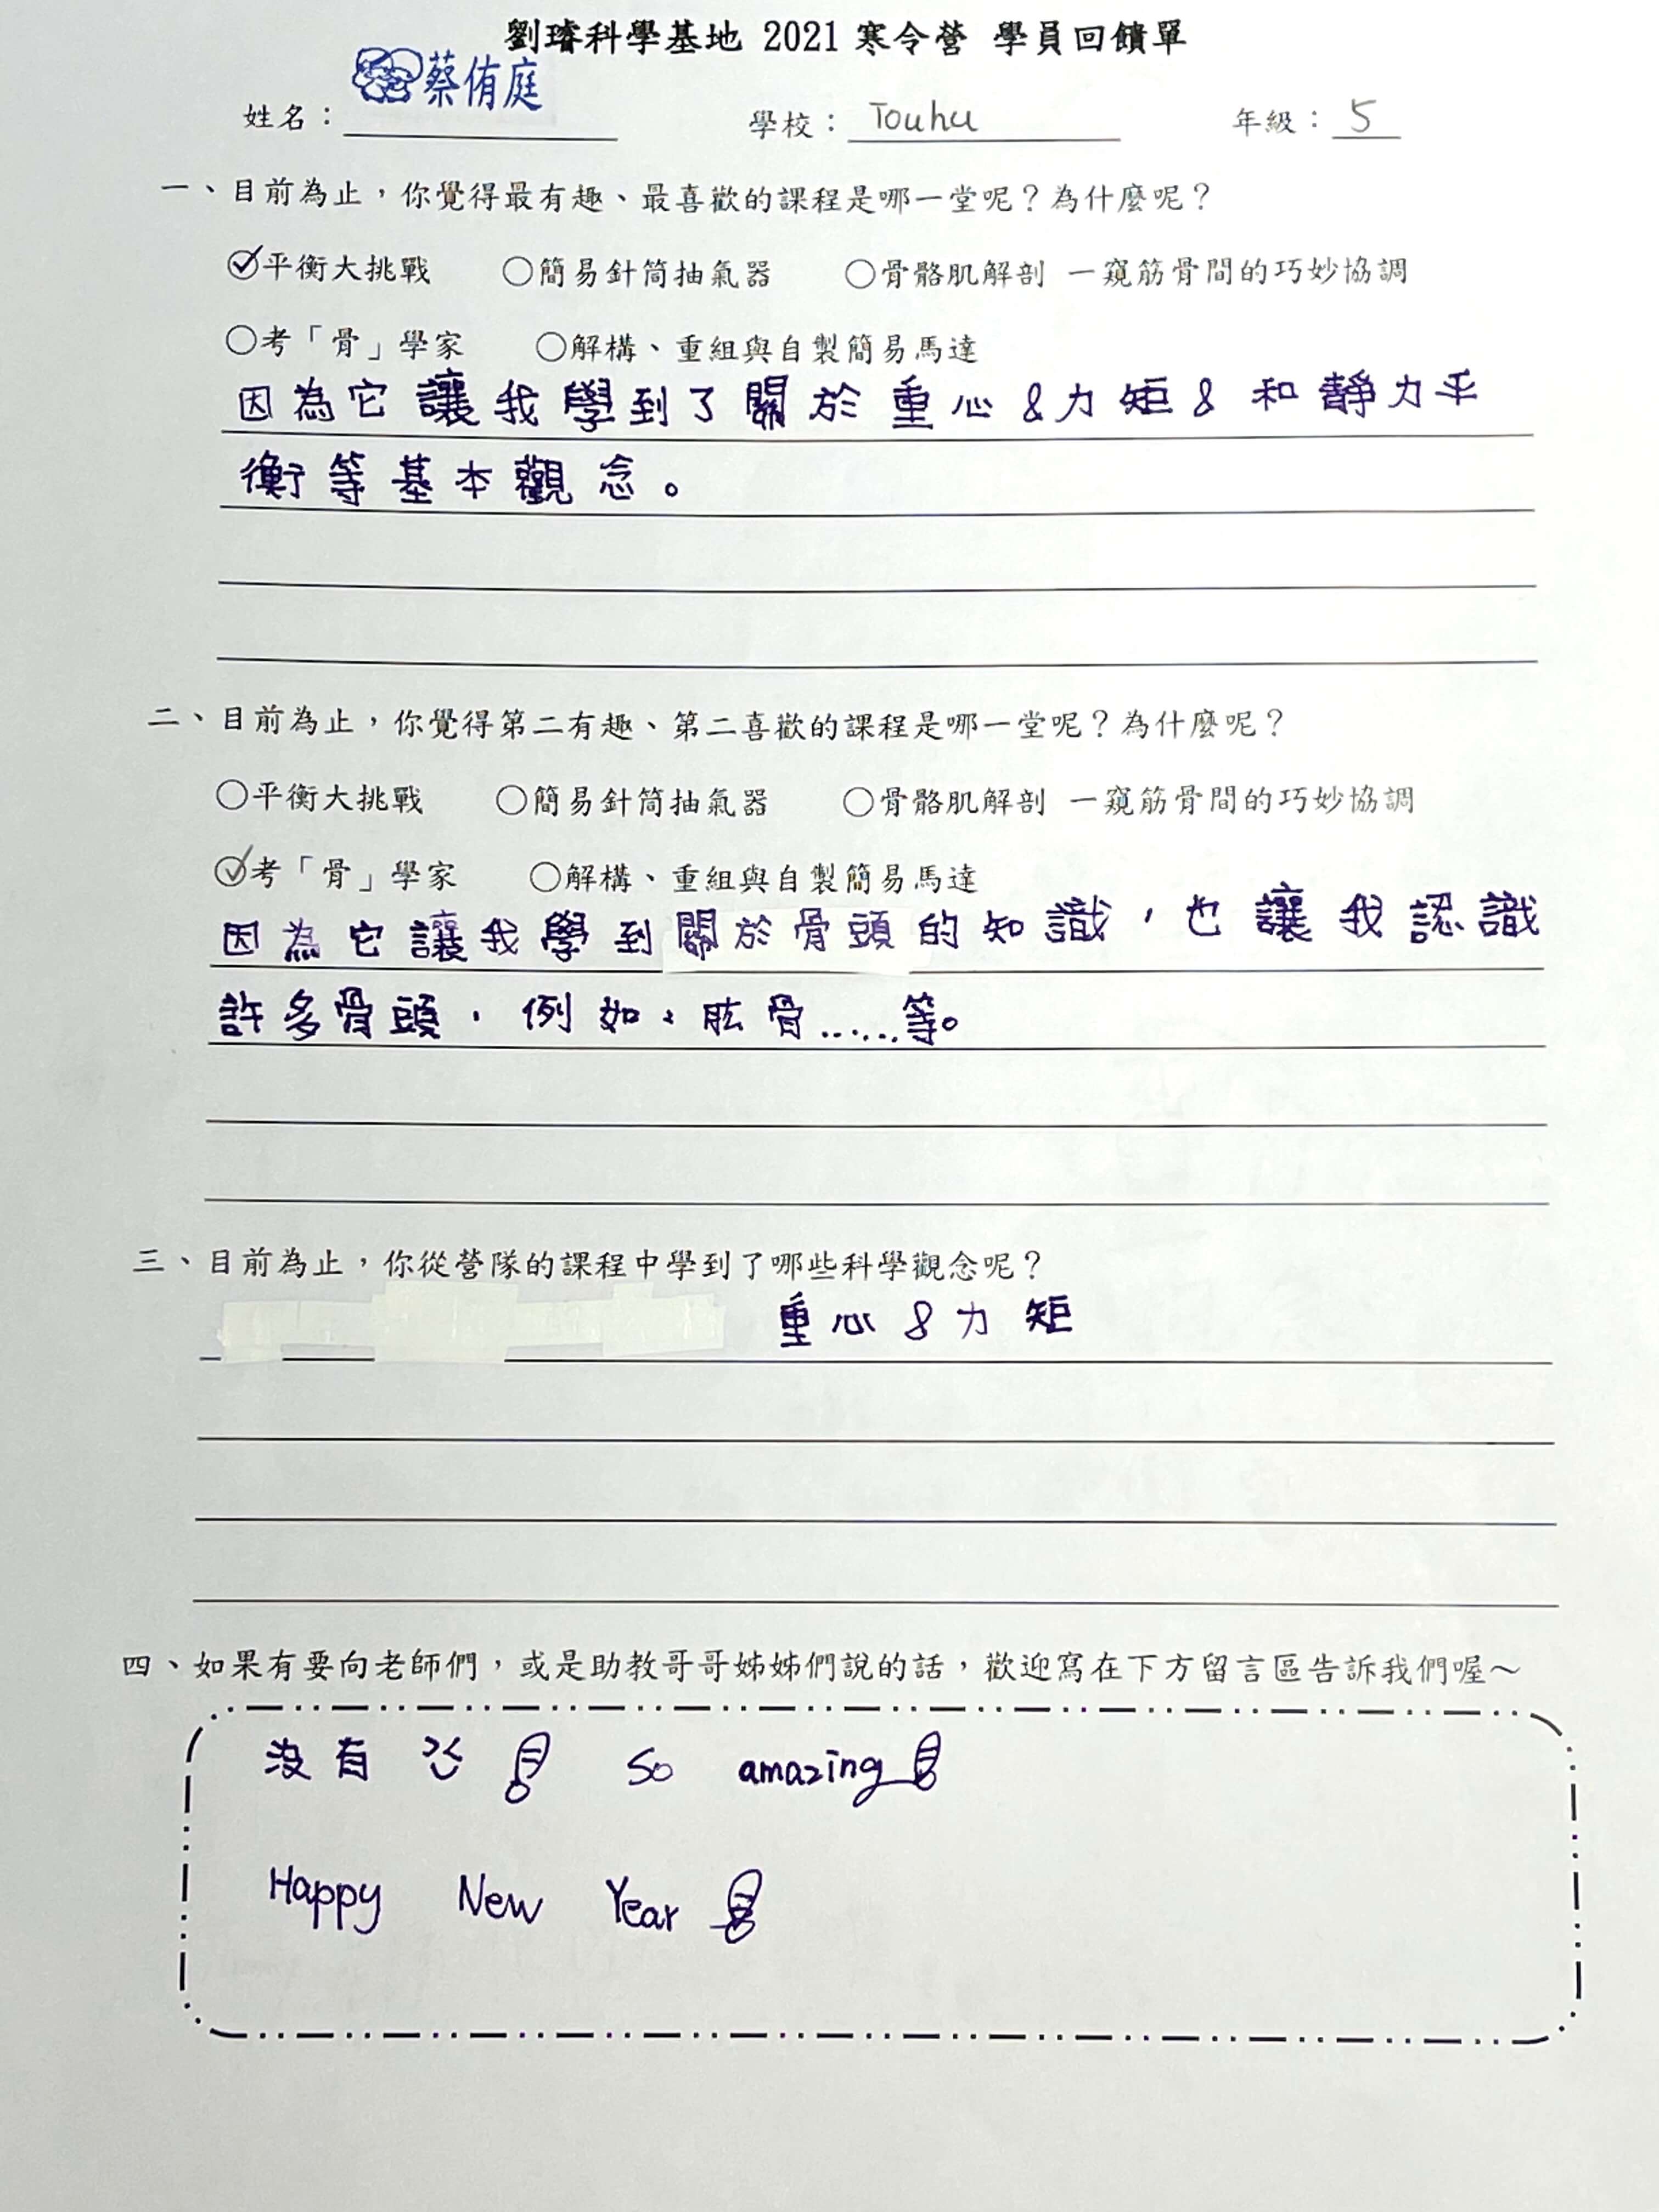 劉璿科學基地 2021 寒令營 學員回饋單
姓名：蔡侑庭 學校：Touhu 年級：5
一、目前為止，你覺得最有趣、最喜歡的課程是哪一堂呢？為什麼呢？
平衡大挑戰 ○簡易針筒抽氣器 ○骨骼肌解剖 一窺筋骨間的巧妙協調
○考「骨」學家 ○解構、重組與自製簡易馬達
因為它讓我學到了關於重心&力矩&和靜力平
衡等基本觀念。
二、目前為止，你覺得第二有趣、第二喜歡的課程是哪一堂呢？為什麼呢？
○平衡大挑戰 ○簡易針筒抽氣器 ○骨骼肌解剖 一窺筋骨間的巧妙協調
考「骨」學家 ○解構、重組與自製簡易馬達
因為它讓我學到關於骨頭的知識，也讓我認識
許多骨頭，例如、肱骨……等。
三、目前為止，你從營隊的課程中學到了哪些科學觀念呢？
重心&力矩
四、如果有要向老師們，或是助教哥哥姊姊們說的話，歡迎寫在下方留言區告訴我們喔～
沒有 ! So amazing!
Happy New Year!